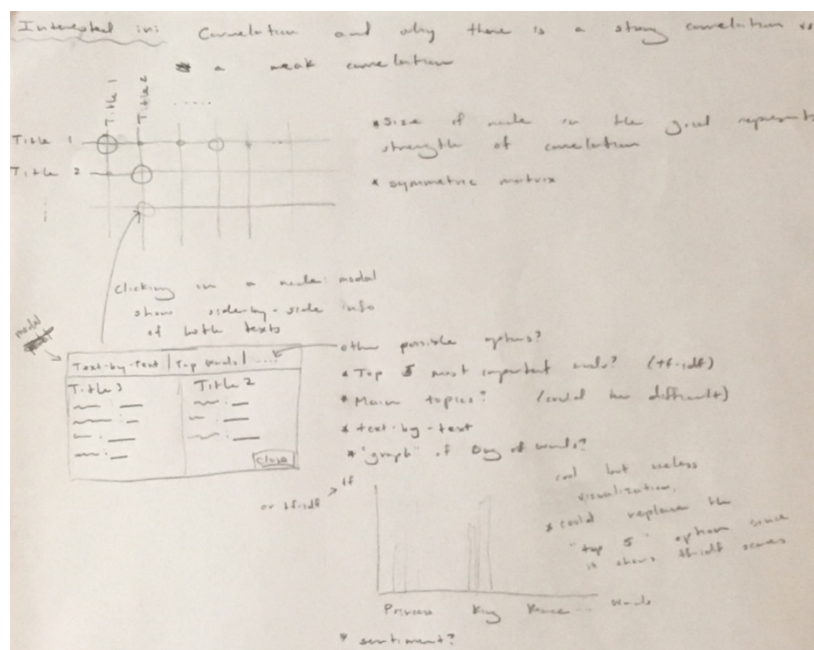 Interested in: Correlation and why there is a strong correlation vs
a weak correlation
Title 1
Title 2
.....
Title 1
Title 2
* Size of node in the grid represents
strength of correlation
* symmetric matrix
Clicking on a node: modal
show side-by-side info
of both texts
modal
Text-by-Text | Top words | ....
Title 3
Title 2
Close
other possible options?
* Top 5 most important words? (tf-idf)
* Main topics? (could be difficult)
* text-by-text
* "graph" of Bag of words?
cool but useless
visualization.
* could replace the
"top 5" option since
it shows tfidf scores
or tf-idf
tf
Princess King Prince ... words
* sentiment?